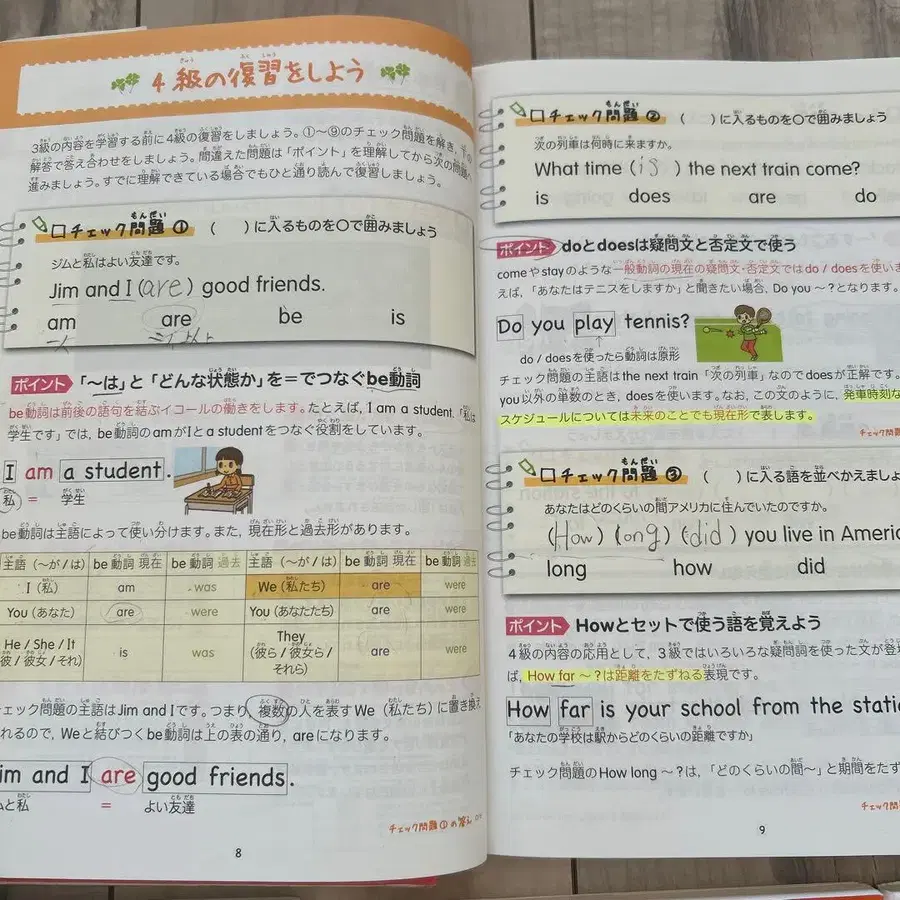 4級の復習をしよう
3級の内容を学習する前に4級の復習をしましょう。①〜⑨のチェック問題を解き、その
解答で答え合わせをしましょう。間違えた問題は「ポイント」を理解してから次の問題へ
進みましょう。すでに理解できている場合でもひと通り読んで復習しましょう。
チェック問題① ( )に入るものを○で囲みましょう
ジムと私はよい友達です。
Jim and I (are) good friends.
am are be is
ポイント 「〜は」と「どんな状態か」を=でつなぐbe動詞
be動詞は前後の語句を結ぶイコールの働きをします。たとえば、I am a student.「私は
学生です」では、be動詞のamがIとa studentをつなぐ役割をしています。
I am a student.
私 = 学生
be動詞は主語によって使い分けます。また、現在形と過去形があります。
主語(〜が/は) be動詞 現在 be動詞 過去 主語(〜が/は) be動詞 現在 be動詞 過去
I(私) am was We(私たち) are were
You(あなた) are were You(あなたたち) are were
He / She / It is was They are were
(彼/彼女/それ) (彼ら/彼女ら/
それら)
ェック問題の主語はJim and Iです。つまり、複数の人を表すWe(私たち)に置き換え
れるので、Weと結びつくbe動詞は上の表の通り、areになります。
im and I are good friends.
ムと私 = よい友達
チェック問題①の答え
8
チェック問題② ( )に入るものを○で囲みましょう
次の列車は何時に来ますか。
What time (is) the next train come?
is does are do
ポイント doとdoesは疑問文と否定文で使う
comeやstayのような一般動詞の現在の疑問文・否定文ではdo / doesを使いま
えば、「あなたはテニスをしますか」と聞きたい場合、Do you 〜?となります。
Do you play tennis?
do / doesを使ったら動詞は原形
チェック問題の主語はthe next train「次の列車」なのでdoesが正解です。
you以外の単数のとき、doesを使います。なお、この文のように、発車時刻な
スケジュールについては未来のことでも現在形で表します。
チェック問
チェック問題③ ( )に入る語を並べかえましょ
あなたはどのくらいの間アメリカに住んでいたのですか。
(How) (ong) (did) you live in Americ
long how did
ポイント Howとセットで使う語を覚えよう
4級の内容の応用として、3級ではいろいろな疑問詞を使った文が登
ば、How far 〜?は距離をたずねる表現です。
How far is your school from the statio
「あなたの学校は駅からどのくらいの距離ですか」
チェック問題のHow long 〜?は、「どのくらいの間〜」と期間をたず
チェック問
9